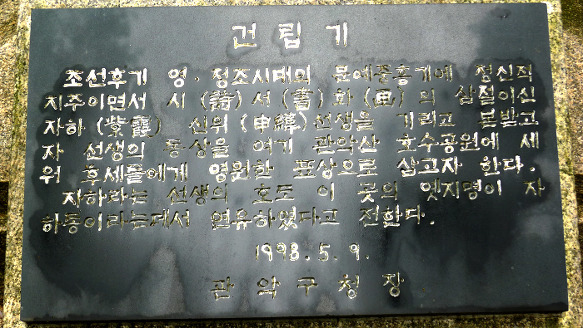 건립기
조선후기 영·정조시대의 문예중흥기에 정신적
지주이면서 시(詩) 서(書) 화(画)의 삼절이신
자하(紫霞) 신위(申緯)선생을 기리고 본받고
자 선생의 동상을 여기 관악산 호수공원에 세
워 후세들에게 영원한 표상으로 삼고자 한다.
자하라는 선생의 호도 이 곳의 옛지명이 자
하동이라는데서 연유하였다고 전한다.
1998.5.9.
관악구청장